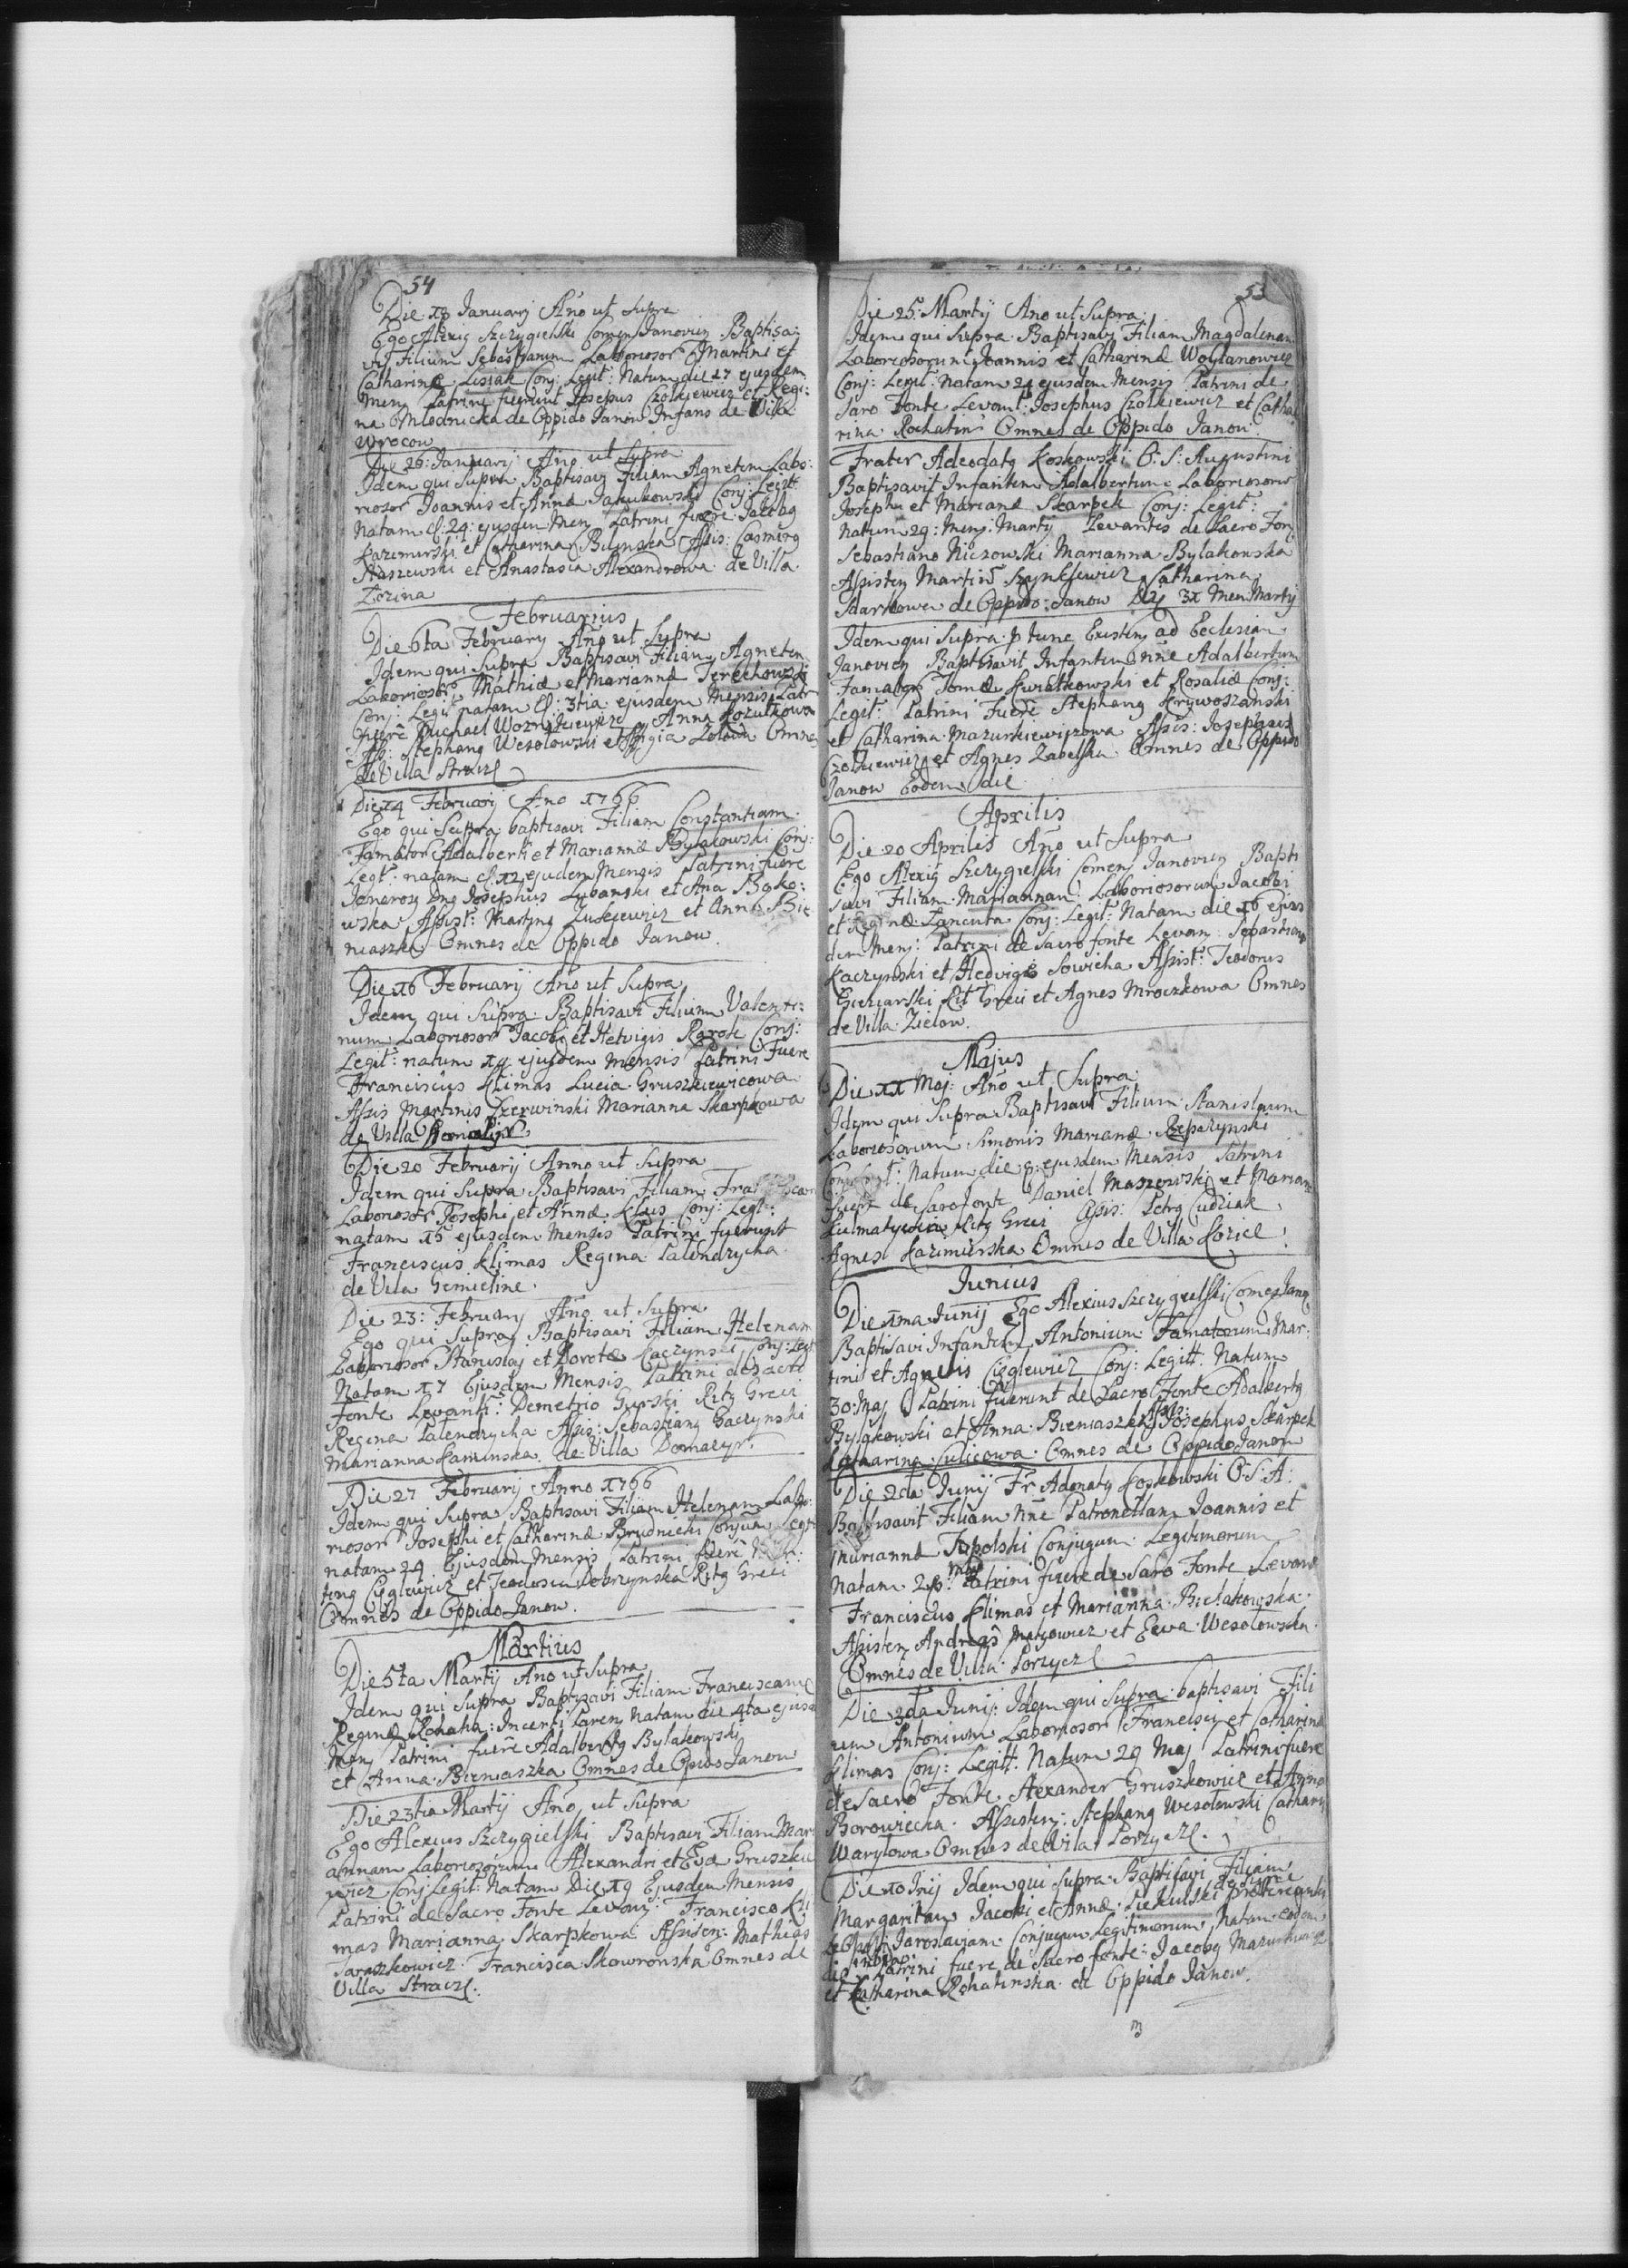 54
Die 18 Januarij Año ut Supra
Ego Alexiq Szczygielski Comen Janovien Baptisa:
vi Filium Sebastianum Laboriosor Martini et
Catharinæ Lisiak Conj: Legit: Natum die 17 ejusdem
Mens Patrini fuerunt Josephus Czołkiewicz et Regi:
na Młodnicka de Oppido Janow Infans de Villa
Wrocow
Die 26: Januarij Año ut Supra
Idem qui Supra Baptisavi Filiam Agnetem Labo:
riosor Joannis et Annæ Jakukowski Conj: Legit:
Natam d: 24: ejusdem Men Patrini fuere Jacobq
Kazimirski et Catharina Bilinska Assis: Casimirq
Staszewski et Anastasia Alexandrowa de Villa
Zozina
Februarius
Die 6ta Februarij Año ut Supra
Idem qui Supra Baptisavi Filiam Agnetem
Laboriosor Mathiæ et Mariannæ Terechowski
Conj: Legit natam d: 3tia ejusdem Mensis Patr
fuere Michael Anna Kozułkowa
Ass: Stephanq Wesołowski et Omnes
de Villa Stracz
Die 14 Februarij Ano 1766
Ego qui Supra baptisavi Filiam Constantiam
Famator Adalberti et Mariannæ Bylakowski Conj:
Legt: natam d: 12 ejusdem Mensis Patrini fuere
Generos Dnq Josephus Lubanski et Ana Bąko:
wska Assist: Martinq Zuskiewicz et Anna Bie
niaszka Omnes de Oppido Janow
Die 16 Februarij Año ut Supra
Idem qui Supra Baptisavi Filium Valenti:
num Laboriosor Jacobi et Hetvigis Rozok Conj:
Legit: natum 14 ejusdem Mensis Patrini Fuere
Franciscus Klimas Lucia Gruszkiewicowa
Assis Martinus Czerwinski Marianna Skarpkowa
de Villa
Die 20 Februarij Anno ut Supra
Idem qui Supra Baptisavi Filiam
Laboriosor Josephi et Annæ Klus Conj: Legt:
natam 15 ejusdem Mensis Patrini fuerunt
Franciscus Klimas Regina Palendrycha
de Villa
Die 23: Februarij Año ut Supra
Ego qui Supra Baptisavi Filiam Helenam
Laboriosor Stanislaj et Dorotæ Kaczynski Conj: Legt
Natam 17 Ejusdem Mensis Patrini de Sacro
fonte Levanti: Demetrio Gurski Ritq Greci
Regina Palendrycha Assis: Sebastianq Gaczynski
Marianna Kaminska de Villa Domazyr
Die 27 Februarij Anno 1766
Idem qui Supra Baptisavi Filiam Helenam Labo:
riosor Josephi et Catharinæ Brudnicki Conjum Legt
natam 24 Ejusdem Mensis Patrini fuere Mar:
tinq Cięglewicz et Teodosia Dobrzynska Ritq Greci
Omnes de Oppido Janow
Martius
Die 5ta Martij Año ut Supra
Idem qui Supra Baptisavi Filiam Franciscam
Reginæ Rohaka: Incerti Paren Natam die 4ta ejusd
Men Patrini fuere Adalbertq Bylakowski
et Anna Bieniaszka Omnes de Opido Janow
Die 23tia Martij Año ut Supra
Ego Alexius Szczygielski Baptisavi Filiam Mari
annam Laboriosorum Alexandri et Evæ Gruszkie
wicz Conj Legit: Natam Die 19 Ejusdem Mensis
Patrini de Sacro Fonte Levan: Francisco Kli
mas Marianna Skarpkowa Assisen: Mathias
Taraszkowicz Francisca Skowronska Omnes de
Villa Stracz
53
Die 25 Martij Año ut Supra
Idem qui Supra Baptisavi Filiam Magdalenam
Laboriosorum Joannis et Catharinæ Woytanowicz
Conj: Legit: Natam 24 ejusdem Mensis Patrini de
Saro Fonte Levant: Josephus Czołkiewicz et Catha
rina Rochatin Omnes de Oppido Janow
Frater Adeodatq Koskowski O: S: Augustini
Baptisavit Infantem Adalbertum Laboriosorum
Josephi et Marianæ Skarpek Conj: Legit:
Natum 29: Mens: Martij Levantes de Sacro Fon
Sebastiano Niezowski Marianna Bylakowska
Assisten Martino Szynksewicz Catharina
de Oppido: Janow 31 Men Martij
Idem qui Supra p tunc Existen ad Eclesiam
Janovien Baptisavit Infantem nñe Adalbertum
Famator Tomæ Kwiatkowski et Rosaliæ Conj:
Legit: Patrini Fuere Stephanq Krzywoszanski
et Catharina Mazurkiewiczowa Assis: Josephus
Czołkiewicz et Agnes Zabelska Omnes de Oppido
Janow Eodem die
Aprilis
Die 20 Aprilis Año ut Supra
Ego Alexiq Szczygielski Comen Janovien Bapti
savi Filiam Mariannam Laboriosorum Jacobi
et Reginæ Lancuta Conj: Legit: Natam die 16 ejus
dem Mens: Patrini de Sacro fonte Levan: Sebastianq
Kaczynski et Hedvigis Sowicha Assist: Teodorus
Rit Greci et Agnes Mroczkowa Omnes
de Villa Zielow
Majus
Die 11 Maj: Año ut Supra
Idem qui Supra Baptisavi Filium Stanislaum
Laboriosorum Simonis Marianæ Rzepczynski
Natum die 8: ejusdem Mensis Patrini
fuere de Saro fonte Daniel Maszewski et Marian
Ritq Greci Assis: Petrq Cudziak
Agnes Kazimirska Omnes de Villa Kozice
Junius
Die 1ma Junij Ego Alexius Szczygielski Comen Janq
Baptisavi Infantem Antonium Famatorum Mar:
tini et Agnetis Cięglewicz Conj: Legitt: Natum
30 Maj Patrini fuerunt de Sacro Fonte Adalbertq
Bylakowski et Anna Bieniaszka Assis: Josephus Skarpek
Catharina Sulicowa Omnes de Oppido Janow
Die 2da Junij Fr Adeodatq Koskowski O: S: A:
Baptisavit Filiam Nñe Patronellam Joannis et
Mariannæ Topolski Conjugum Legitimorum
Natam 28: Maj Patrini fuere de Saro Fonte Levan
Franciscus Klimas et Marianna Bielakowska
Assisten Andreas Matyowicz et Ewa Wesołowska
Omnes de Villa Porzycz
Die 3da Junij: Idem qui Supra baptisavi Fili
um Antonium Laboriosor Francisci et Catharinæ
Klimas Conj: Legitt: Natum 29 Maj Patrini fuere
de Sacro Fonte Alexander Gruszkowicz et Anna
Borowiecka Assisten: Stephanq Wesołowski Cathari
Waryłowa Omnes de Villa Porzycz
Die 10 Jnij Idem qui Supra Baptisavi Filiam
Margaritam Jacobi et Annæ Piekulski
Jaroslaviam Conjugum Legitimorum Natam eadem
die Patrini fuere de Sacro fonte: Jacobq Mazurkiewicz
et Katharina Rohatinska de Oppido Janow